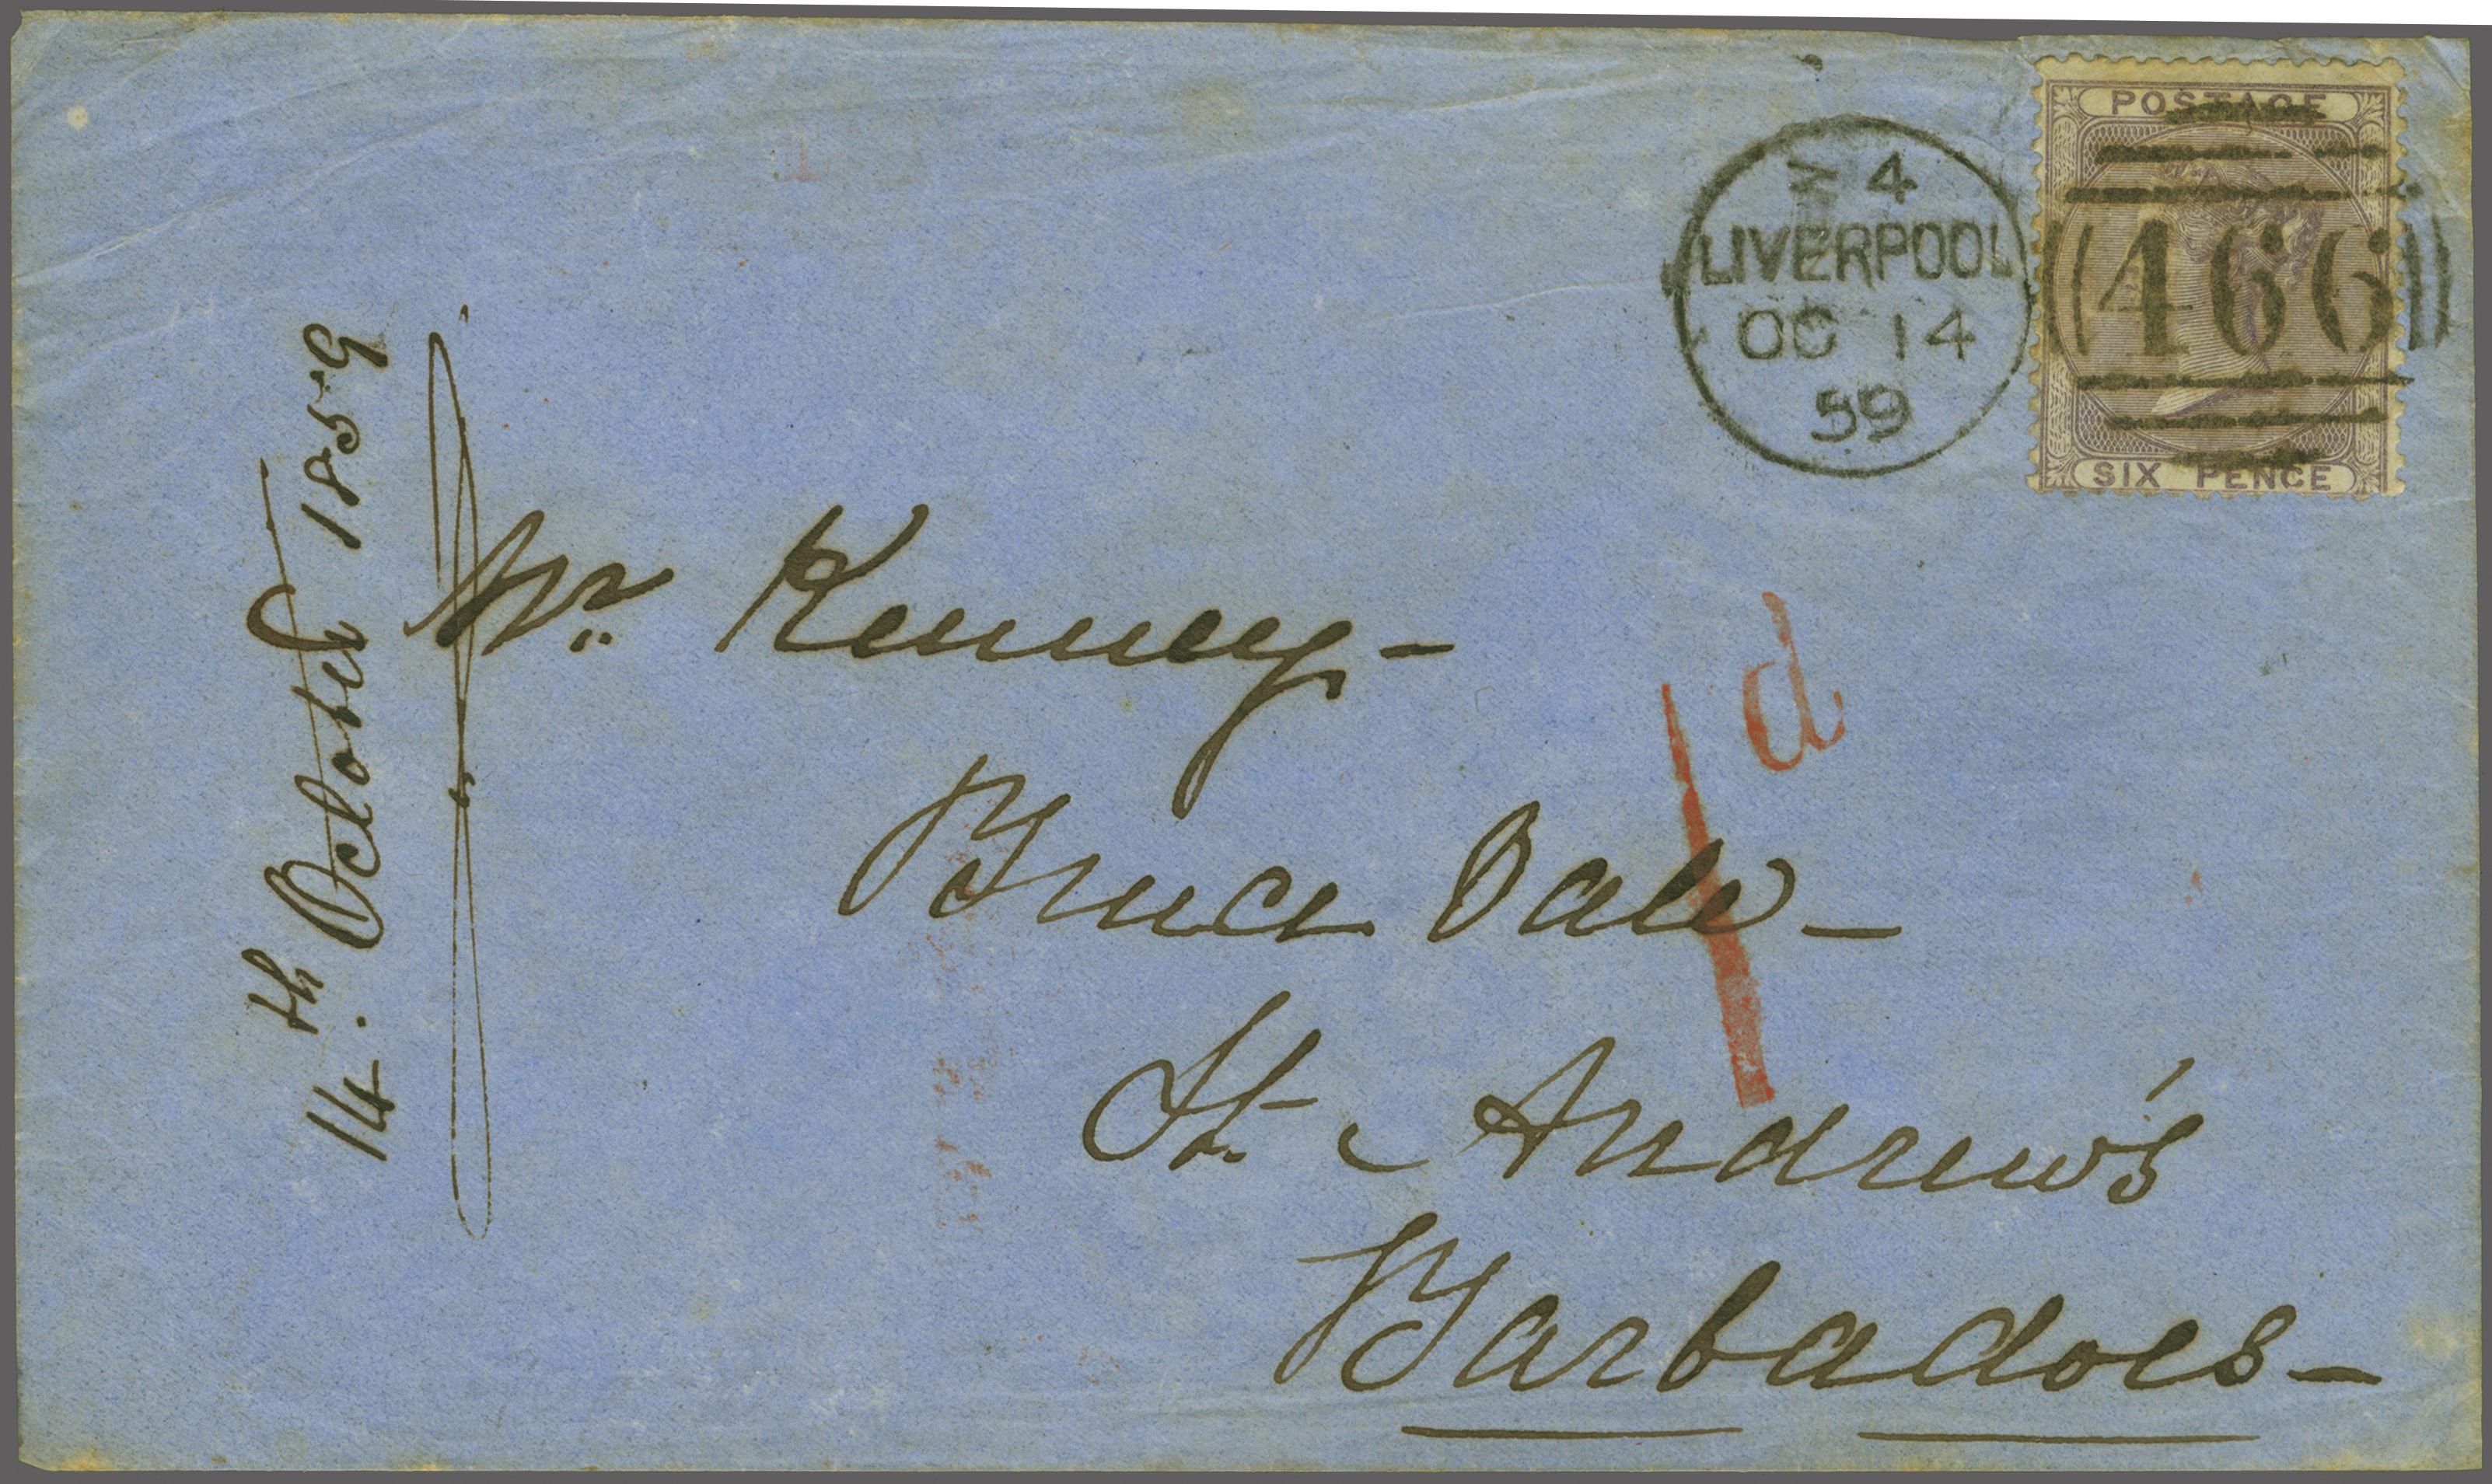 POSTAGE
466
SIX PENCE
4
LIVERPOOL
OC 14
59
14th October 1859
Mr. Kenney-
1d
Bruce Vale-
St. Andrew's
Barbadoes-